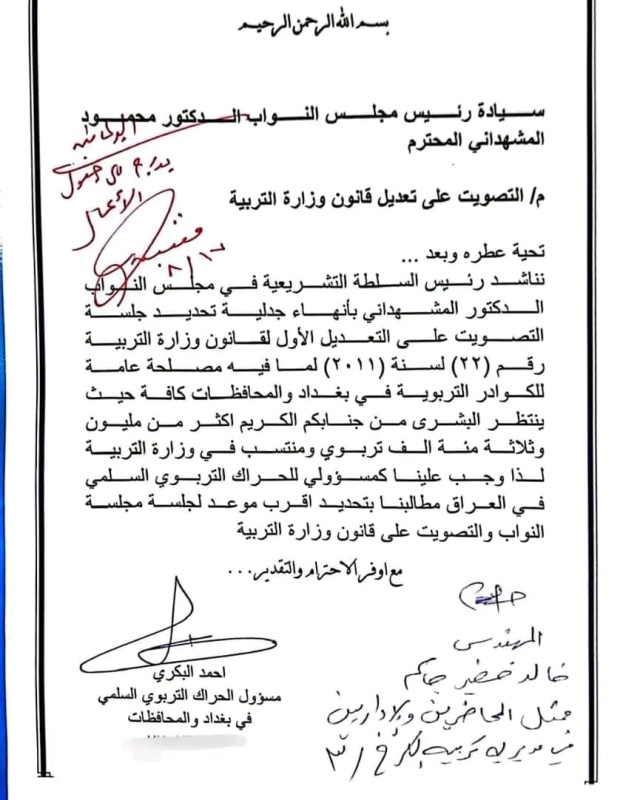 بسم الله الرحمن الرحيم
سيادة رئيس مجلس النواب الدكتور محمود
المشهداني المحترم
يدرج على جدول
الأعمال
٨/١٢
م/ التصويت على تعديل قانون وزارة التربية
تحية عطره وبعد ...
نناشد رئيس السلطة التشريعية في مجلس النواب
الدكتور المشهداني بأنهاء جدلية تحديد جلسة
التصويت على التعديل الأول لقانون وزارة التربية
رقم (٢٢) لسنة (٢٠١١) لما فيه مصلحة عامة
للكوادر التربوية في بغداد والمحافظات كافة حيث
ينتظر البشرى من جنابكم الكريم اكثر من مليون
وثلاثة مئة الف تربوي ومنتسب في وزارة التربية
لذا وجب علينا كمسؤولي للحراك التربوي السلمي
في العراق مطالبنا بتحديد اقرب موعد لجلسة مجلسة
النواب والتصويت على قانون وزارة التربية
مع اوفر الاحترام والتقدير...
المهندس
خالد خضير جاسم
ممثل المحاضرين والاداريين
في مديرية تربية الكرخ / ٣
احمد البكري
مسؤول الحراك التربوي السلمي
في بغداد والمحافظات